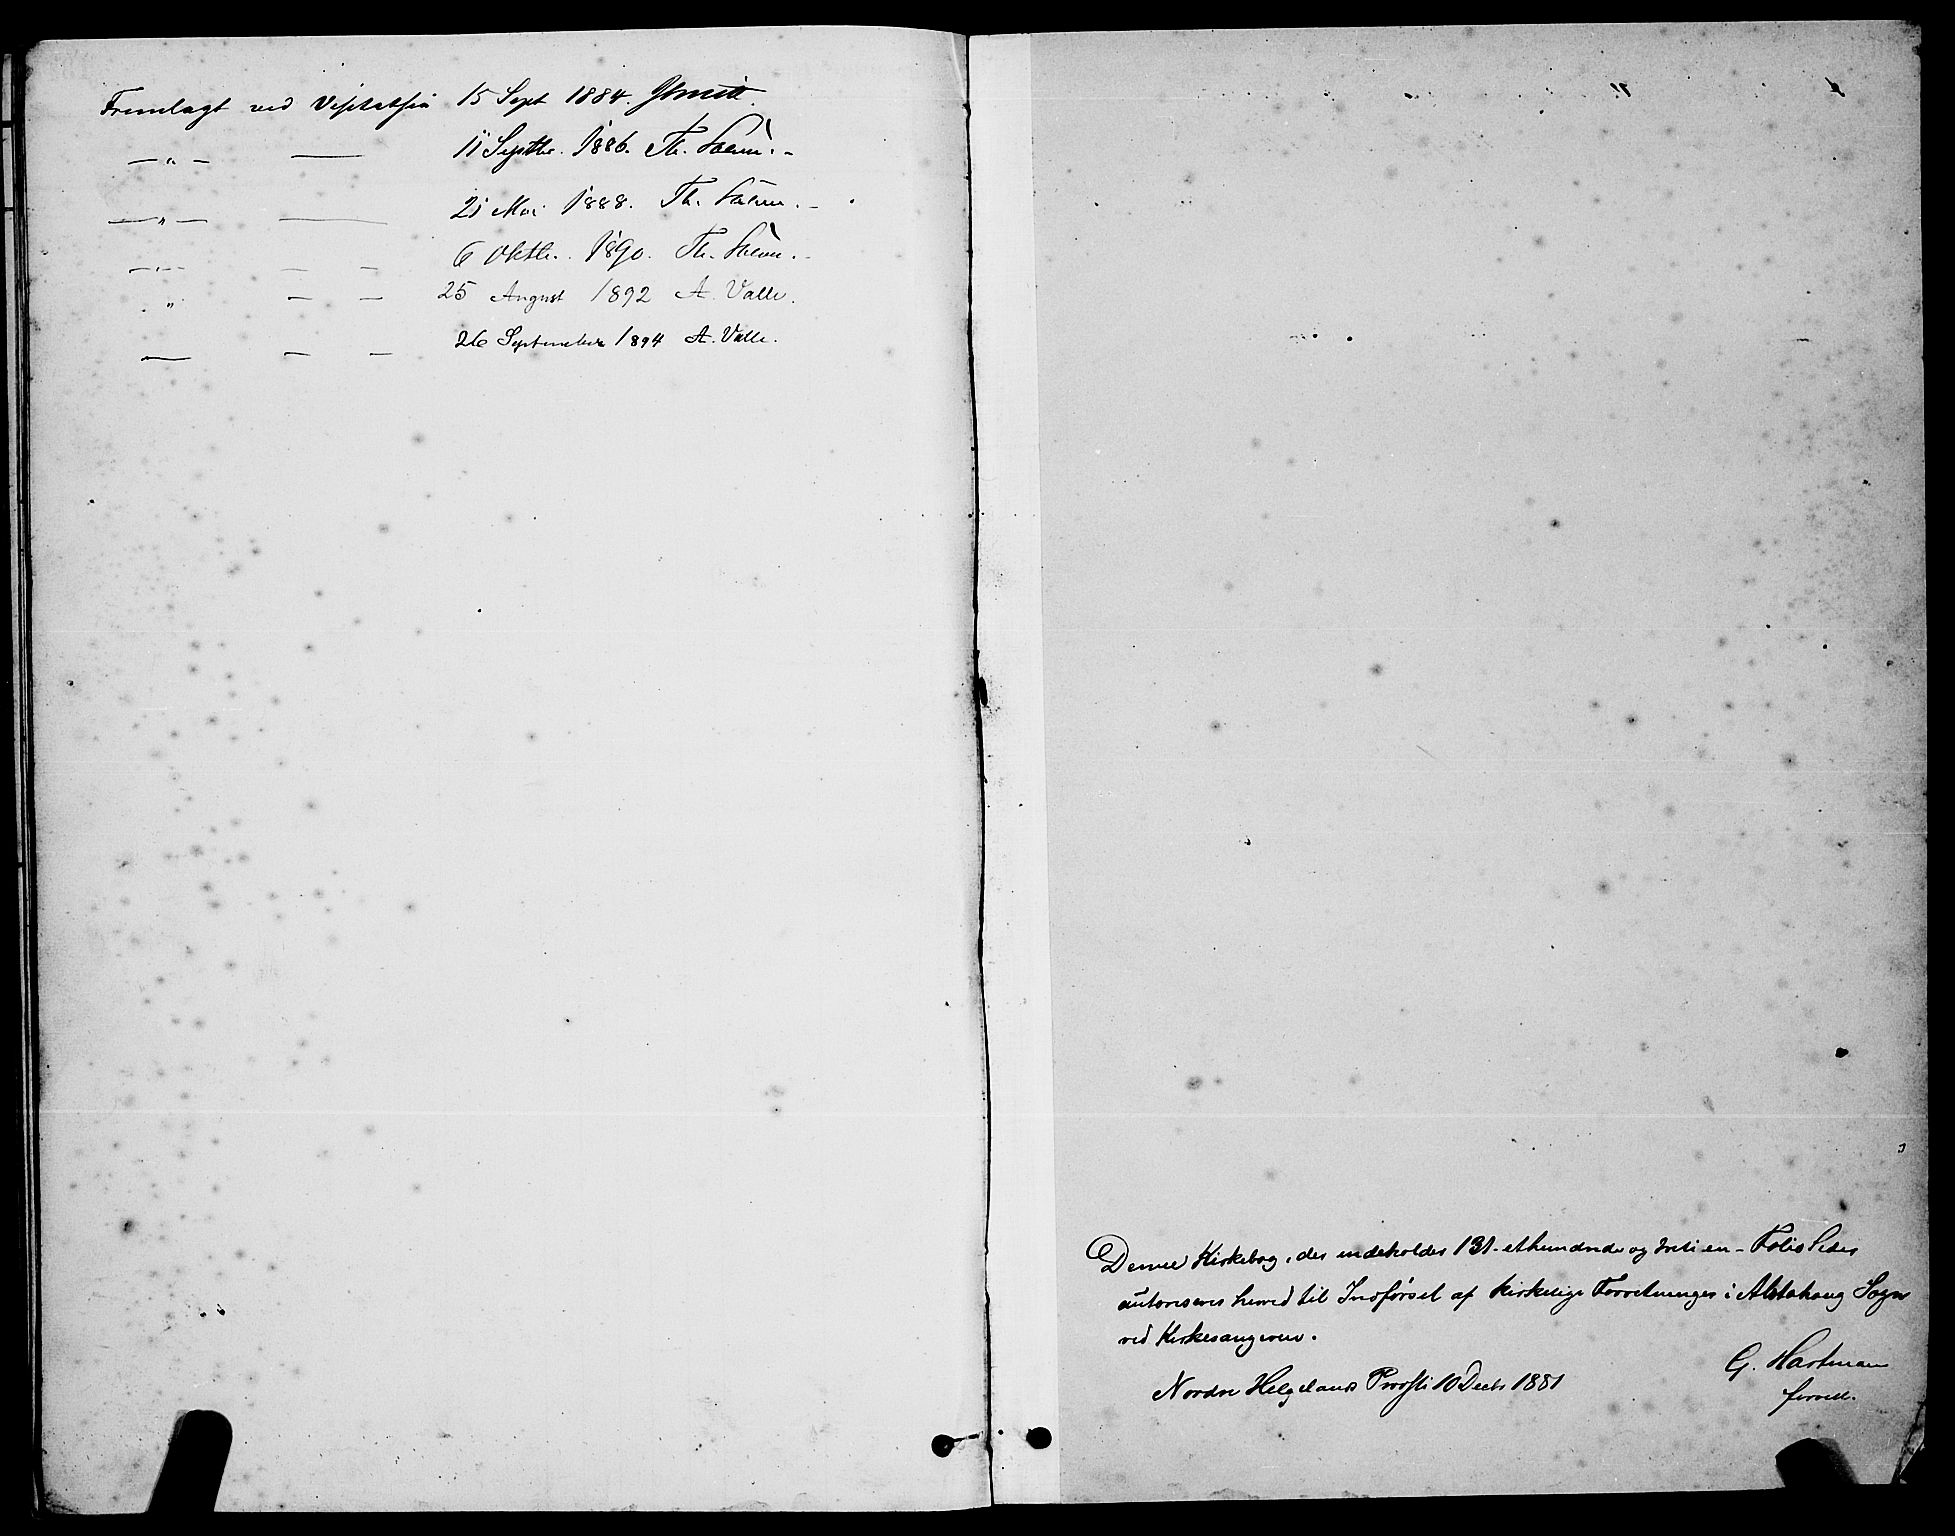 Fremlagt ved Visitatsen 15 Sept 1884.
— " — —— 11 Septbr. 1886. Th.
— " — —— 21 Mai 1888. Th.
— " — — — 6 Oktbr. 1890. Th.
" — — 25 August 1892 A. Valle.
— — — 26 September 1894 A. Valle.
Denne Kirkebog, der indeholder 131 - ethundrede og treti en - Folio Sider
autoriseres herved til Indførsel af kirkelige Forretninger i Alstahaug Sogn
ved Kirkesangeren.
Nordre Helgelands Provsti 10 Decbr 1881
G. Hartman